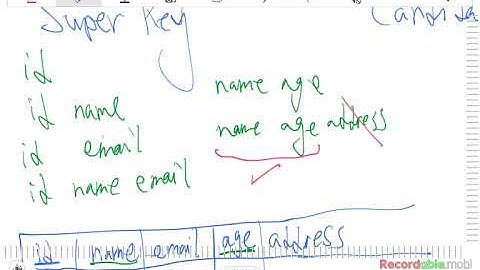 Super Key
id
id name
id email
id name email
name age
name age address
id name email age address
Recordable.mobi